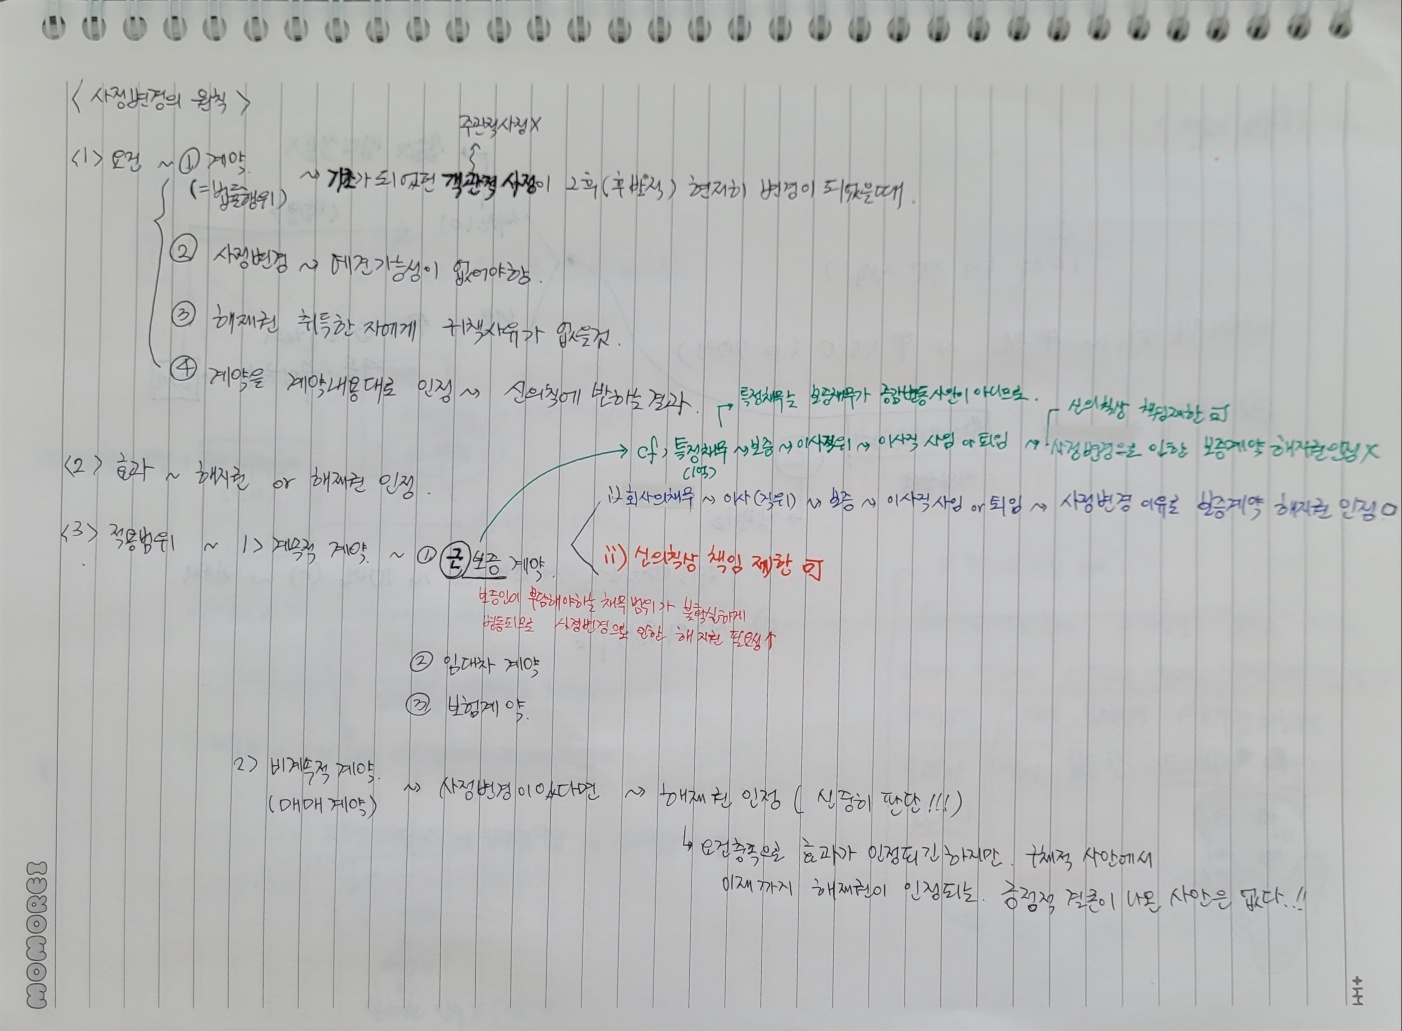 < 사정변경의 원칙 >
주관적사정 X
<1> 요건 ~ ① 계약 ~ 기초가 되었던 객관적 사정이 그후(후발적) 현저히 변경이 되었을때.
(=법률행위)
② 사정변경 ~ 예견가능성이 없어야함.
③ 해제권 취득한 자에게 귀책사유가 없을것.
④ 계약을 계약내용대로 인정 ~ 신의칙에 반하는 결과.
특정채무는 보증채무가 증감변동사안이 아니므로.
신의칙상 책임제한 可
cf, 특정채무 ~ 보증 ~ 이사직위 ~ 이사직 사임 or 퇴임 → 사정변경으로 인한 보증계약 해지권인정 X
(1억)
<2> 효과 ~ 해지권 or 해제권 인정.
i) 회사의채무 ~ 이사(직위) ~ 보증 ~ 이사직사임 or 퇴임 ~ 사정변경 이유로 보증계약 해지권 인정 O
<3> 적용범위 ~ 1> 계속적 계약. ~ ① 근보증 계약.
ii) 신의칙상 책임 제한 可
보증인이 부담해야하는 채무 범위가 불확실하게
변동되므로 사정변경으로 인한 해지권 필요성↑
② 임대차 계약
③ 보험계약.
2> 비계속적 계약. ~ 사정변경이있다면 ~ 해제권 인정 ( 신중히 판단!!!)
(매매계약)
↳ 요건충족으로 효과가 인정되긴하지만. 구체적 사안에서
이제까지 해제권이 인정되는. 긍정적 결론이 나온 사안은 없다.!!
MOMOREE